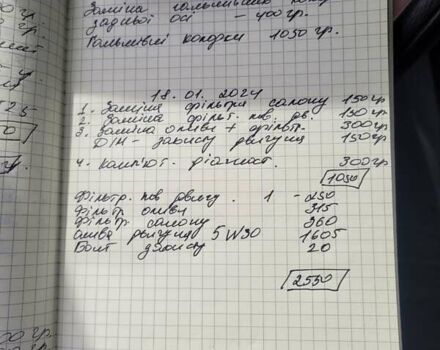 Заміна гальмівних колод.
задньої осі - 400 гр.
Гальмівні колодки 1050 гр.
18.01.2024
1. Заміна фільтра салону 150 гр
2. Заміна фільт. пов. дв. 150 гр
3. Заміна оливи + фільтр. 300 гр
ДІМ - захисту двигуна 150 гр
4. Комп'ют. діагност. 300 гр
1050
Фільтр. пов двигу. 1 - 250
Фільтр оливи 315
Фільтр салону 360
Олива двигуна 5W30 1605
Болт захисту 20
2550